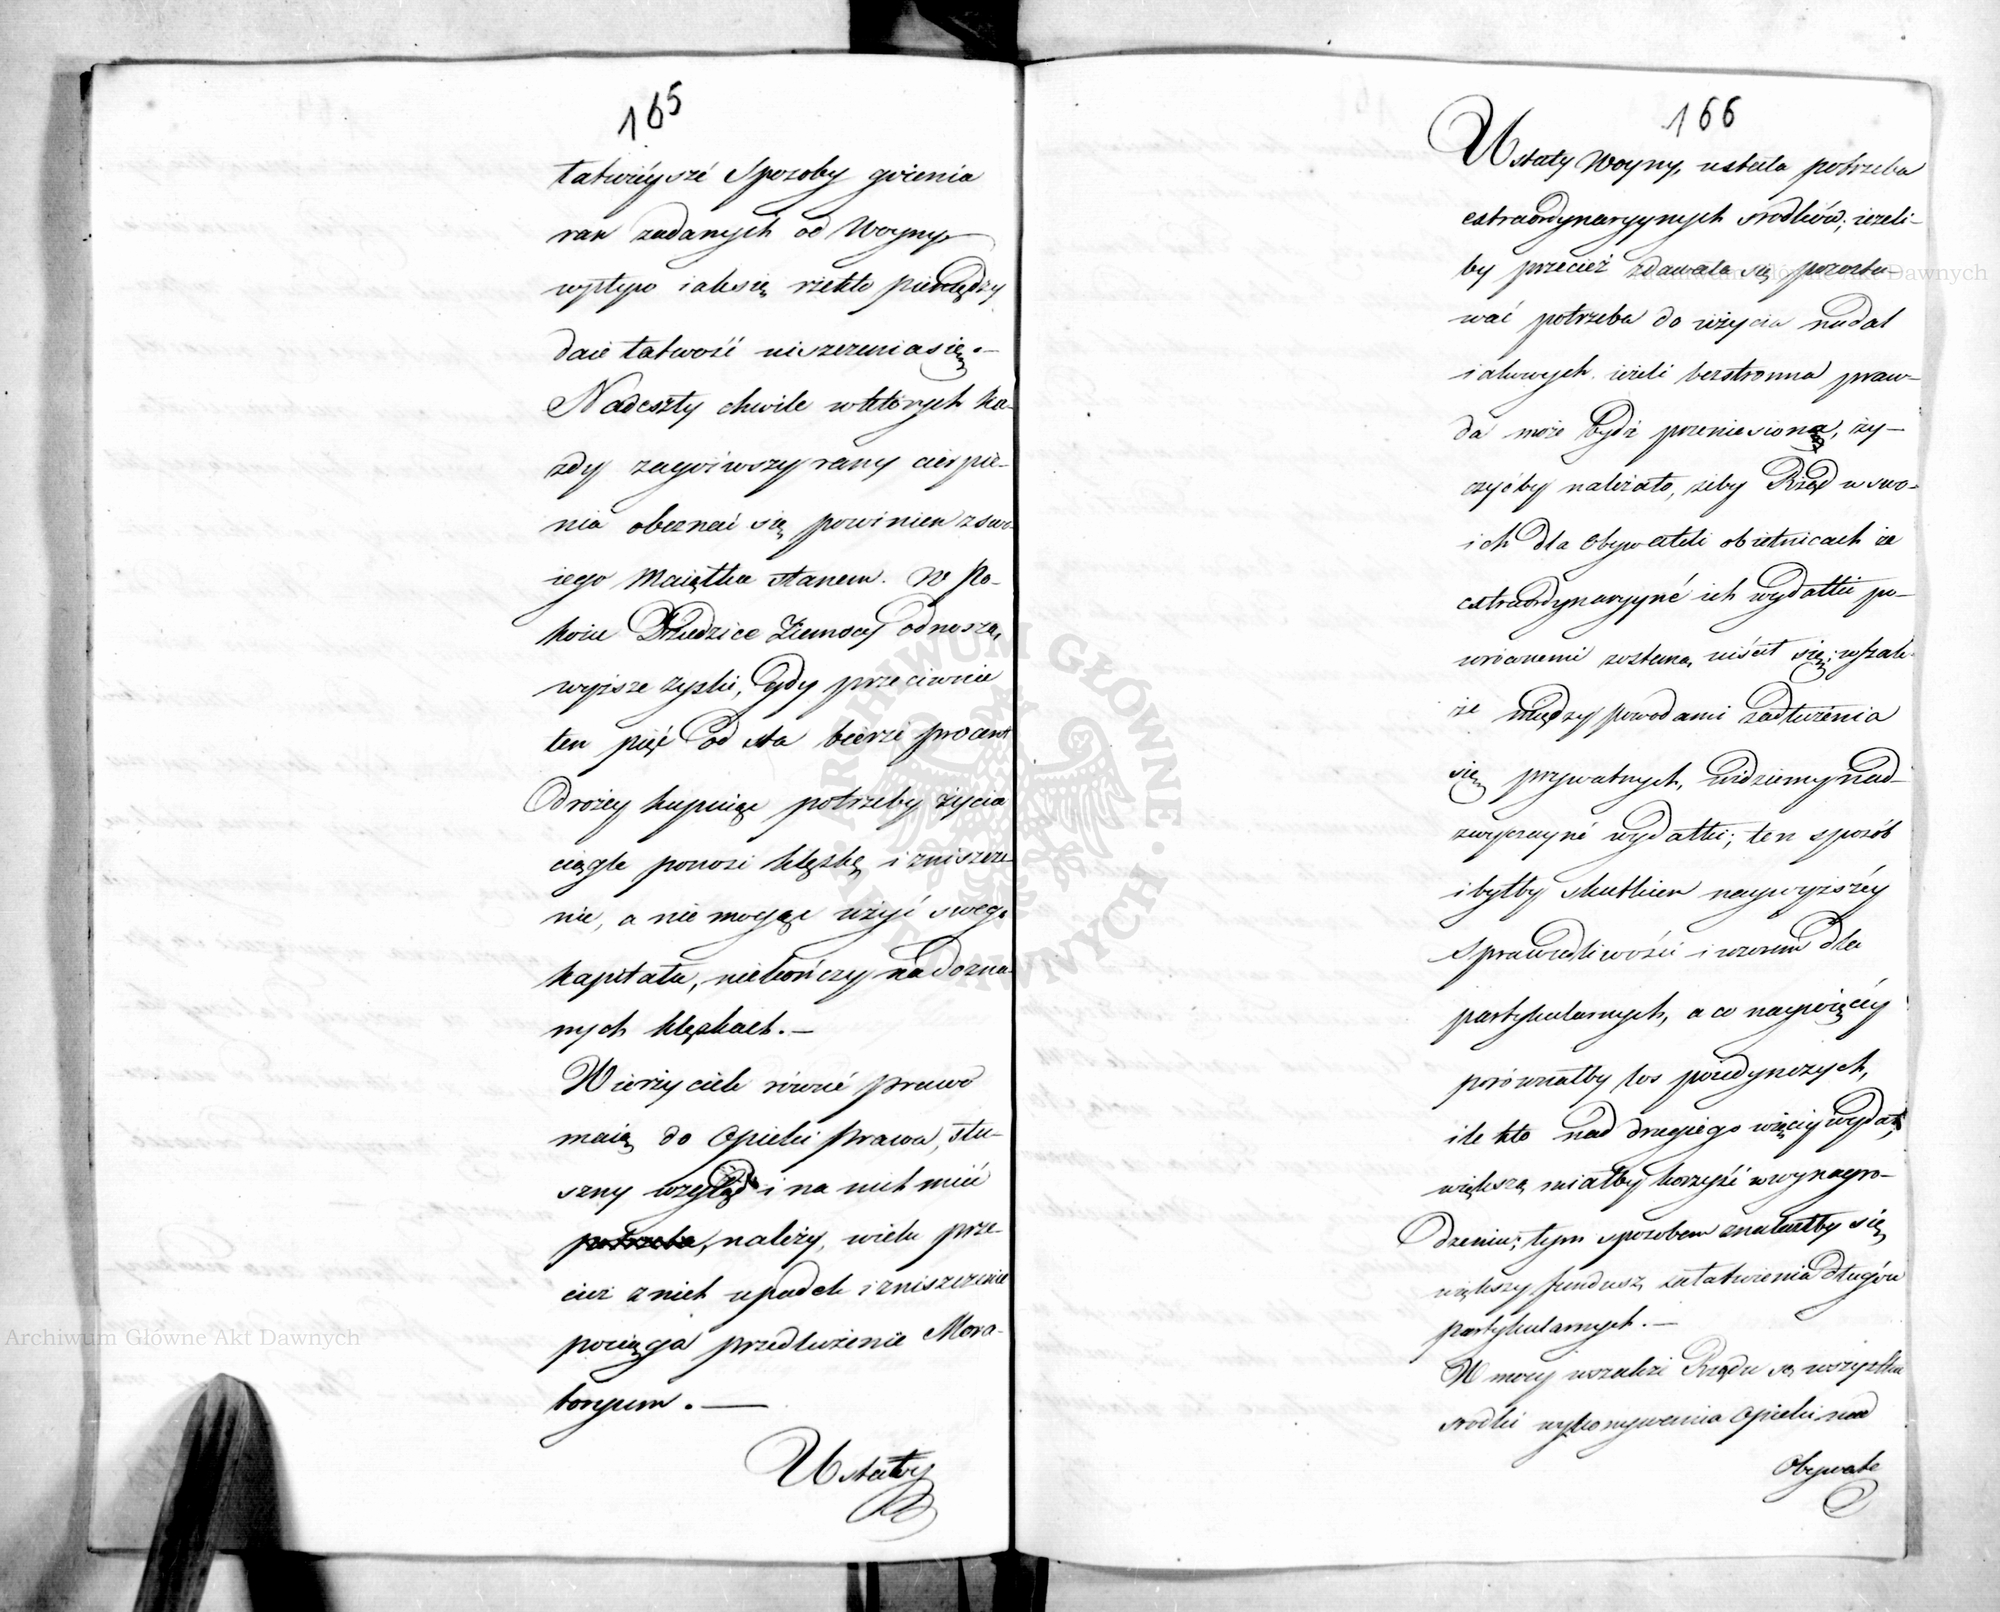 165
łatwiéyszé Sposoby goienia
ran zadanych od Woyny,
wpływ iak się rzekło pieniędzy
daie łatwość uiszczenia się.—
Nadeszły chwile w których ka-
zdy zagoiwszy rany cierpie-
nia obeznać się powinien z swo-
iego Maiątku stanem. W Po-
koiu Dziedzice Ziemscy odnoszą,
wyższe zyski, gdy przeciwnie
ten pięć od sta bierze procent
drożey kupuiąc potrzeby życia
ciągle ponosi klęskę i zniszcze-
nie, a nie mogąc użyć swego
kapitału, nie kończy na dozna-
nych klęskach.—
Wierzyciele równé prawo
maią do Opieki Prawa, słu-
szny wzgląd i na nich mieć
potrzeba, należy, wielu prze-
cież z nich upadek i zniszczenie
pociąga przedłużenie Mora-
toryum.—
Ustały
166
Ustały Woyny, ustała potrzeba
extraordynaryynych srodków; ieżeli-
by przecież zdawała się pozosta-
wać potrzeba do użycia nadal
iakowych. ieżeli bezstronna praw-
da może bydź przeniesiona, ży-
czyćby należało, żeby Rząd w swo-
ich dla Obywateli obietnicach że
extraordynaryyné ich wydatki po-
wróconemi zostaną, uiścił się; wszak-
że między powodami zadłużenia
się prywatnych, widziemy nad-
zwyczayné wydatki; ten sposób
i byłby skutkiem naywyższéy
Sprawiedliwości i wzorem dla
partykularnych, a co naywięcéy
porównałby los poiedynczych,
ile kto nad drugiego więcéy wydał,
większą miałby korzyść w wynagro-
dzeniu; tym sposobem znalazłby się
większy fundusz załatwienia długów
partykularnych.—
W mocy wszakże Rządu są wszystkie
srodki wykonywania Opieki nad
Obywate
Archiwum Główne Akt Dawnych
Archiwum Główne Akt Dawnych
ARCHIWUM GŁÓWNE AKT DAWNYCH